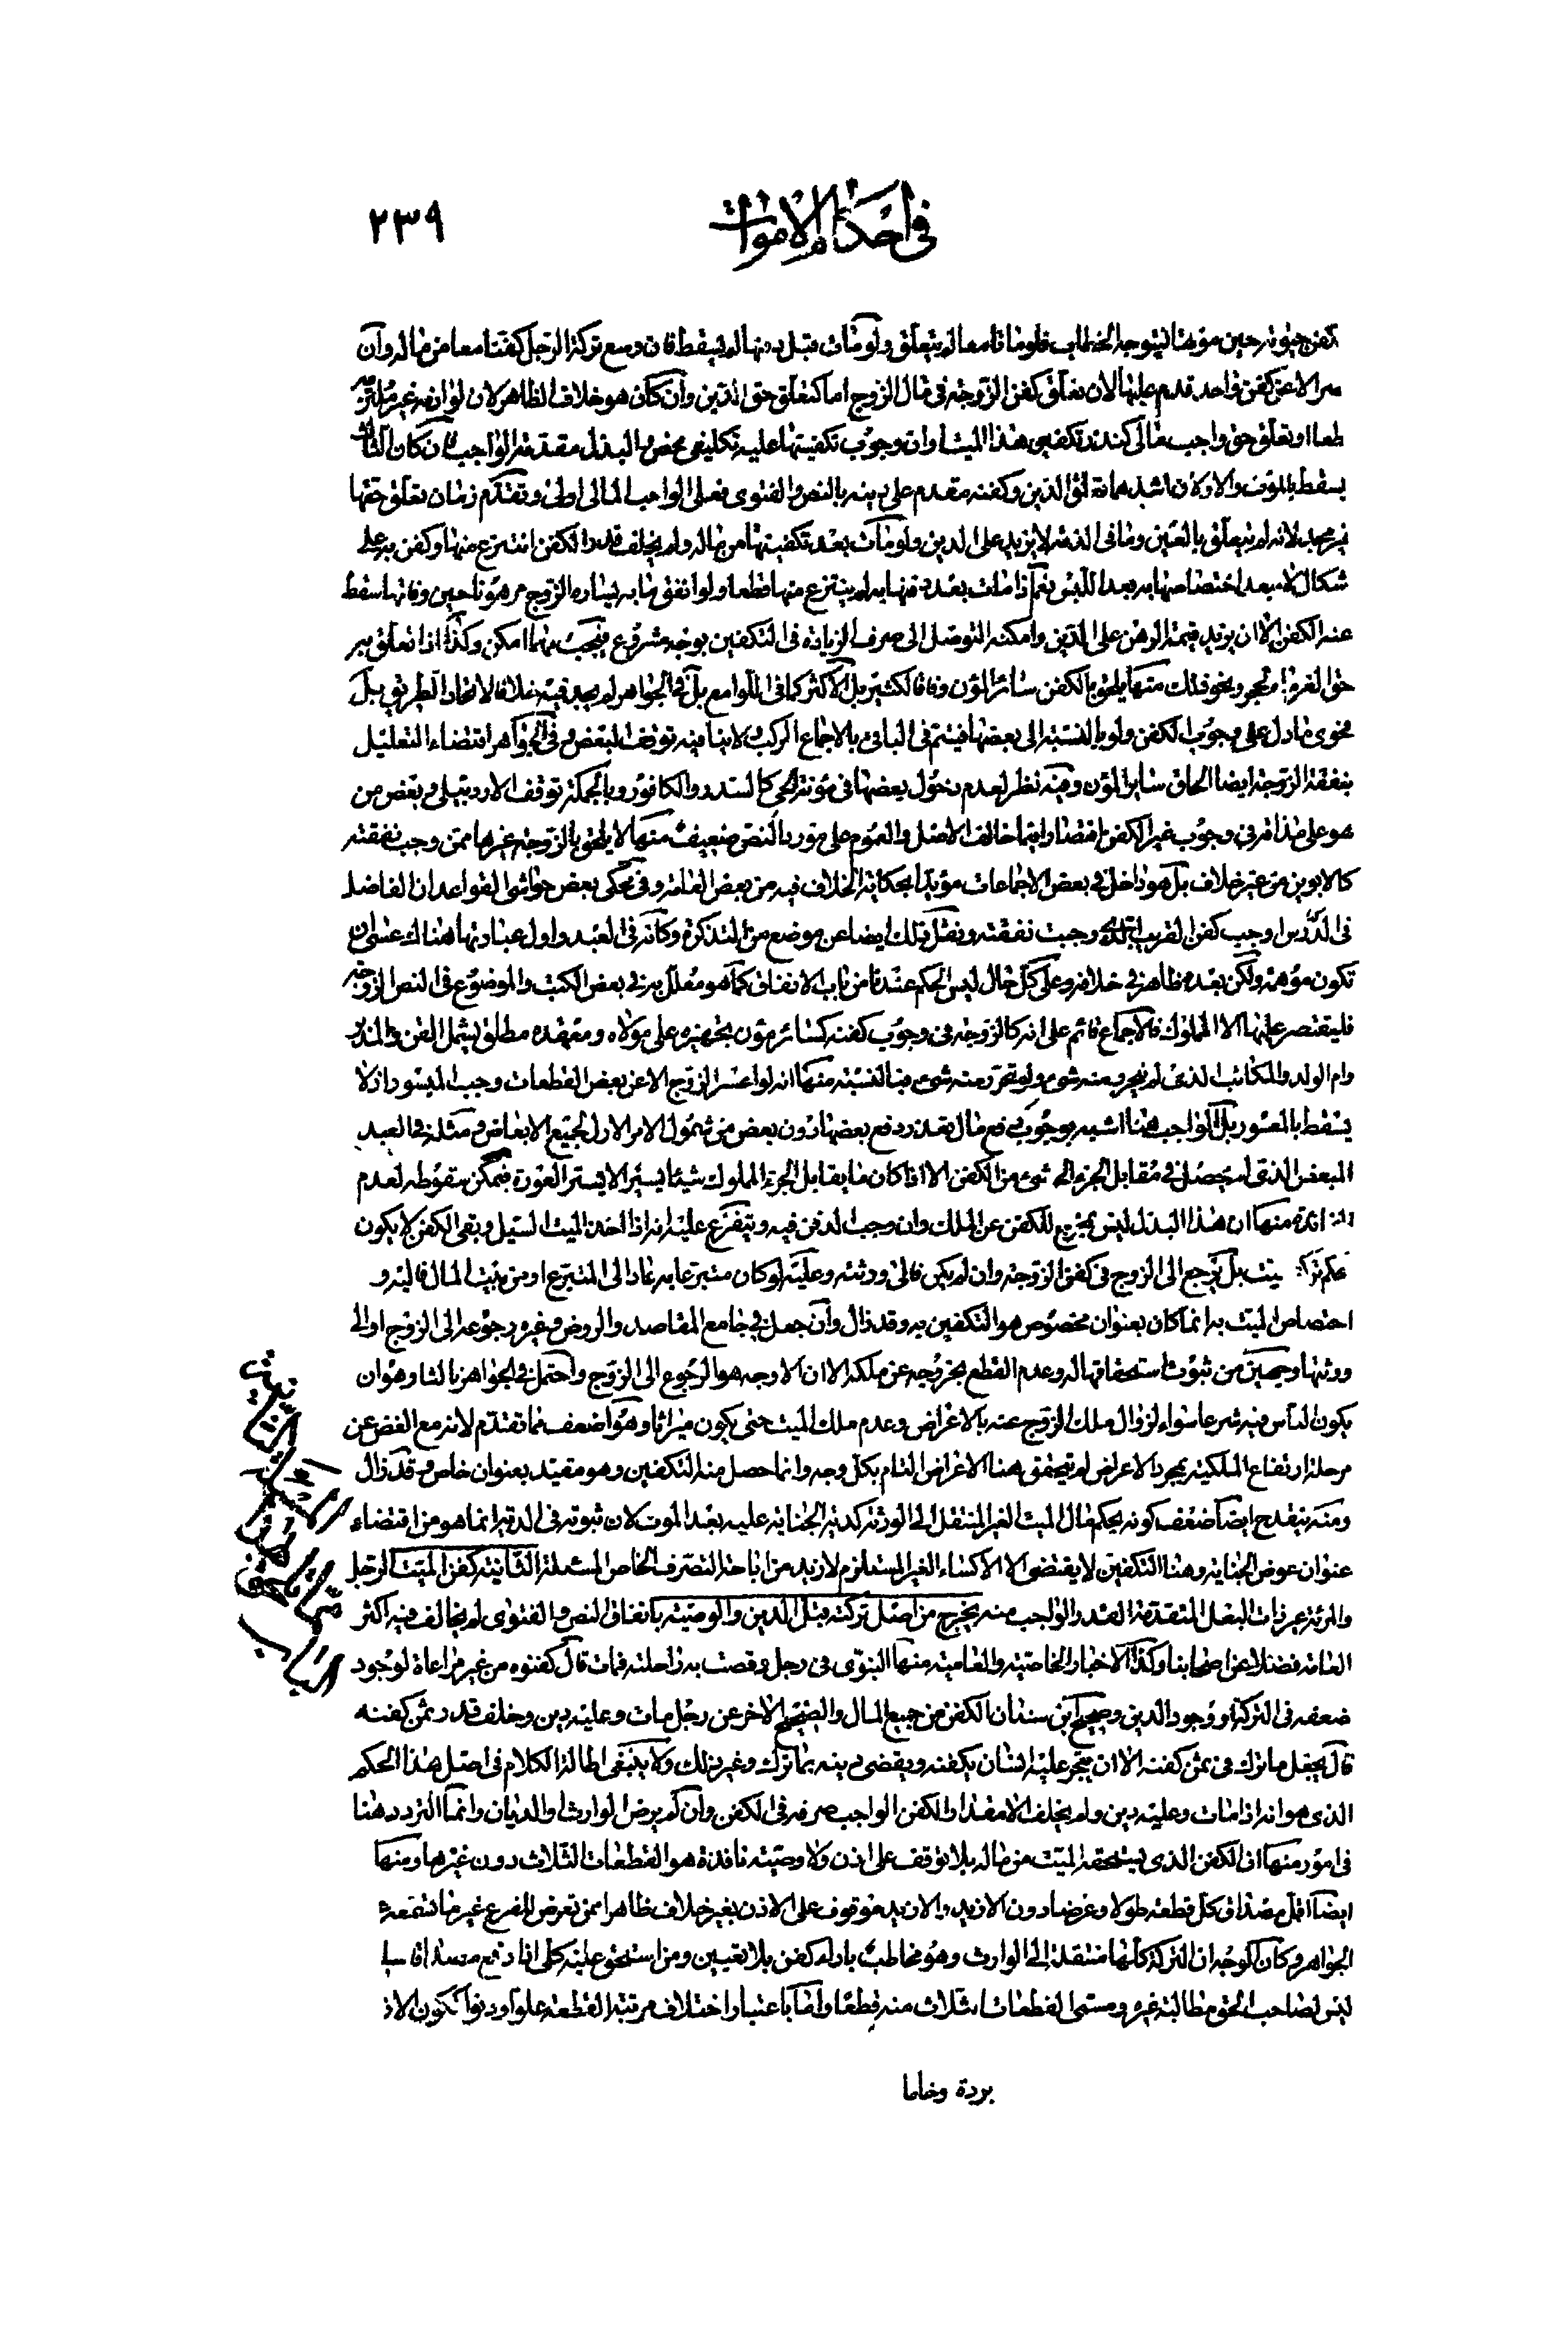 في احكام الاموات
٢٣٩
حيوته حين موتها ليتوجه الخطاب فلو ماتا معا لم يتعلق ولو مات قبل دفنها لم يسقط فان وسع تركة الرجل كفنا معا من ماله وان
الا عن كفن واحد قدم عليها لان تعلق كفن الزوجة في مال الزوج اما كتعلق حق الدين وان كان هو خلاف الظاهر لان لوازمه غير ملتزمه
او تعلق حق واجب مالي كنذر تكفين هذا الميت او ان وجوب تكفينها عليه تكليفي محض والبذل مقدمة الواجب فان كان الثالث
يسقط بالموت والاولان اشدهما تعلق الدين وكفنه مقدم على دينه بالنص والفتوى فعلى الواجب المالي اولى وتقدم زمان تعلق حقها
غير مجد لانه لم يتعلق بالعين وما في الذمة لا يزيد على الدين ولو مات بعد تكفينها من ماله ولم يخلف قدر الكفن انتزع منها وكفن به على
اشكال لا سيما بعد اختصاصها به بعد اللبس نعم اذا مات بعد دفنها به لم ينتزع منها قطعا ولو اتفق ما به يساره الزوج مرهونا حين وفاتها سقط
عنه الكفن الا ان يزيد قيمة الرهن على الدين وامكنه التوصل الى صرف الزيادة في التكفين بوجه مشروع فيجب مهما امكن وكذا اذا تعلق به
حق الغرماء بحجر ونحو ذلك منها يلحق بالكفن سائر المؤن وفاقا لكثير بل الاكثر كما في اللوامع بل في الجواهر لم يجد فيه خلافا لاتحاد الطريق بل
فحوى ما دل على وجوب الكفن ولو بالنسبة الى بعضها فيتم في الباقي بالاجماع المركب ولا ينافيه توقف البعض وفي الجواهر اقتضاء التعليل
بنفقة الزوجة ايضا الحاق سائر المؤن وفيه نظر لعدم دخول بعضها في مؤنة الحي كالسدر والكافور وبالجملة توقف الاردبيلي وبعض من
هو على مذاقه في وجوب غير الكفن اقتصارا فيما خالف الاصل والعموم على مورد النص ضعيف منها لا يلحق بالزوجة غيرها ممن وجب نفقته
كالابوين من غير خلاف بل هو داخل في بعض الاجماعات مؤيدا بحكاية الخلاف فيه من بعض العامة وفي محكي بعض حواشي القواعد ان الفاضل
في الدروس اوجب كفن القريب الذي وجبت نفقته ونقل ذلك ايضا عن موضع من التذكرة وكانه في العبد واول عبارتها هناك عسى ان
تكون موهنة ولكن بعده ظاهر في خلافه وعلى كل حال ليس الحكم عندنا من باب الانفاق كما هو معلل به في بعض الكتب والموضوع في النص الزوجة
فليقتصر عليها الا المملوك فالاجماع قائم على انه كالزوجة في وجوب كفنه كسائر مؤن تجهيزه على مولاه ومعقده مطلق يشمل القن والمدبر
وام الولد والمكاتب الذي لم يتحرر منه شيء ولو تحرر منه شيء فبالنسبة منها انه لو اعسر الزوج الا عن بعض القطعات وجب الميسور اذ لا
يسقط بالمعسور بل الواجب هنا اشبه بوجوب دفع مال تعذر دفع بعضها دون بعض من شمول الامر الاول لجميع الابعاض ومثله في العبد
المبعض الذي لم يحصل في مقابل الجزء الحر شيء من الكفن الا اذا كان ما يقابل الجزء المملوك شيئا يسيرا لا يستر العورة فيمكن سقوطه لعدم
الفائدة منها ان هذا البذل ليس بمخرج للكفن عن الملك وان وجب الدفن فيه ويتفرع عليه انه اذا اخذ الميت السيل وبقي الكفن لا يكون
بل يرجع الى الزوج في كفن الزوجة وان لم يكن فالى ورثته وعليه لو كان متبرعا به عاد الى المتبرع او من بيت المال فاليه و
اختصاص الميت به انما كان بعنوان مخصوص هو التكفين به وقد زال وان جعل في جامع المقاصد والروض وغيره رجوعه الى الزوج او الى
ورثتها وجهين من ثبوت استحقاقها له وعدم القطع بخروجه عن ملكه الا ان الاوجه هو الرجوع الى الزوج واحتمل في الجواهر ثالثا وهو ان
يكون الناس فيه شرعا سواء لزوال ملك الزوج عنه بالاعراض وعدم ملك الميت حتى يكون ميراثا وهو اضعف مما تقدم لانه مع الغض عن
مرحلة ارتفاع الملكية بمجرد الاعراض لم يتحقق هنا الاعراض التام بكل وجه وانما حصل منه التكفين وهو مقيد بعنوان خاص وقد زال
ومنه ينقدح ايضا ضعف كونه بحكم مال الميت الغير المنتقل الى الورثة كدية الجناية عليه بعد الموت لان ثبوته في الدية انما هو من اقتضاء
عنوان عوض الجناية وهنا التكفين لا يقتضي الا الاكساء الغير المستلزم لازيد من اباحة التصرف الخاص المسئلة الثانية كفن الميت الرجل
والمرئة غير ذات البعل المتقدمة القدر الواجب منه يخرج من اصل تركته قبل الدين والوصية باتفاق النص والفتوى لم يخالف فيه اكثر
العامة فضلا عن اصحابنا وكذا الاخبار الخاصية والعامية منها النبوي في رجل وقصت به راحلته فمات قال كفنوه من غير مراعاة لوجود
ضعفه في التركة او وجود الدين وصحيح ابن سنان الكفن من جميع المال والصحيح الاخر عن رجل مات وعليه دين وخلف قدر ثمن كفنه
قال يجعل ما ترك في ثمن كفنه الا ان يتجر عليه انسان يكفنه ويقضى دينه بما ترك وغير ذلك ولا ينبغي اطالة الكلام في اصل هذا الحكم
الذي هو انه اذا مات وعليه دين ولم يخلف الا مقدار الكفن الواجب صرفه في الكفن وان لم يرض الوارث او الديان وانما التردد هنا
في امور منها ان الكفن الذي يستحقه الميت من ماله بلا توقف على اذن ولا وصيته نافذة هو القطعات الثلاث دون غيرها ومنها
ايضا اقل مصداق كل قطعة طولا وعرضا دون الازيد والازيد موقوف على الاذن بغير خلاف ظاهر ممن تعرض للفرع غير ما تسمعه
الجواهر وكان الوجه ان التركة كلها منتقلة الى الوارث وهو مخاطب باداء كفن بلا تعيين ومن استحق عليه كلي اذا دفع
ليس لصاحب الحق مطالبة غيره ومسمى القطعات الثلاث منه قطعا واما باعتبار اختلاف مرتبة القطعة علوا ودنوا ككون الازار
بردة وخاما